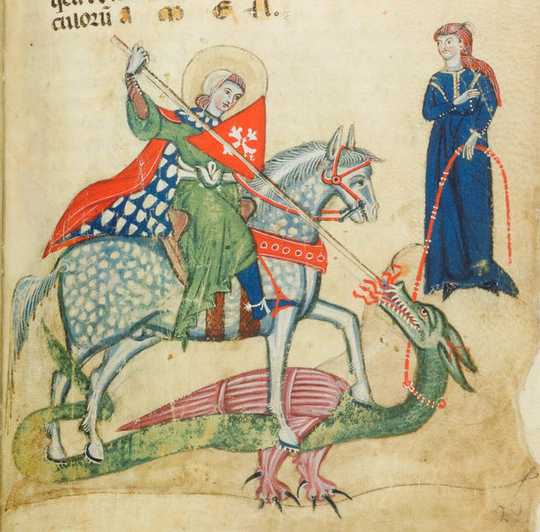 culorū a m e n.